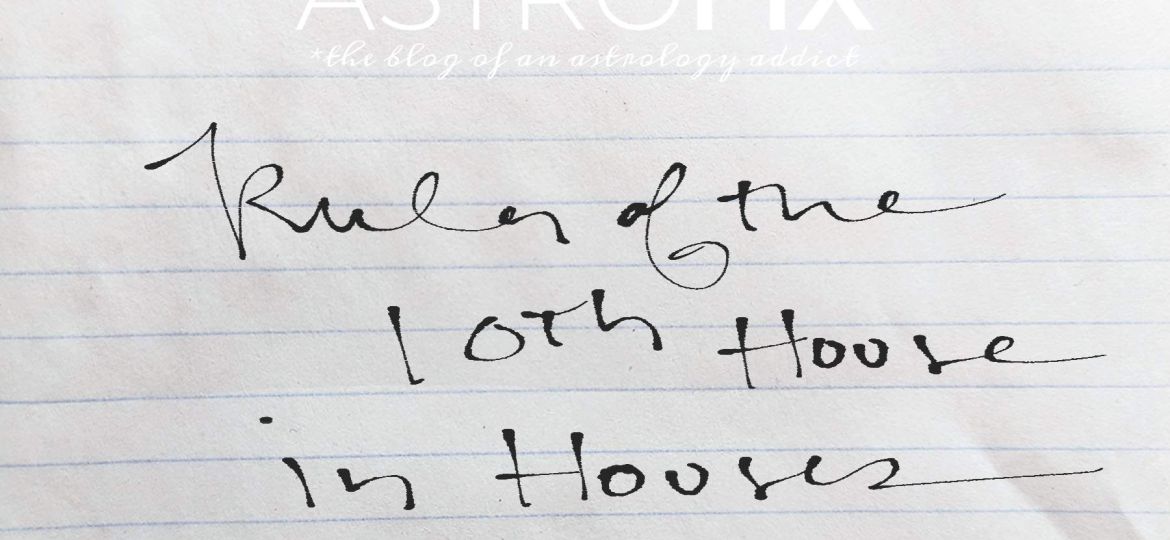 ASTROFIX
*the blog of an astrology addict
Ruler of the
10th House
in Houses